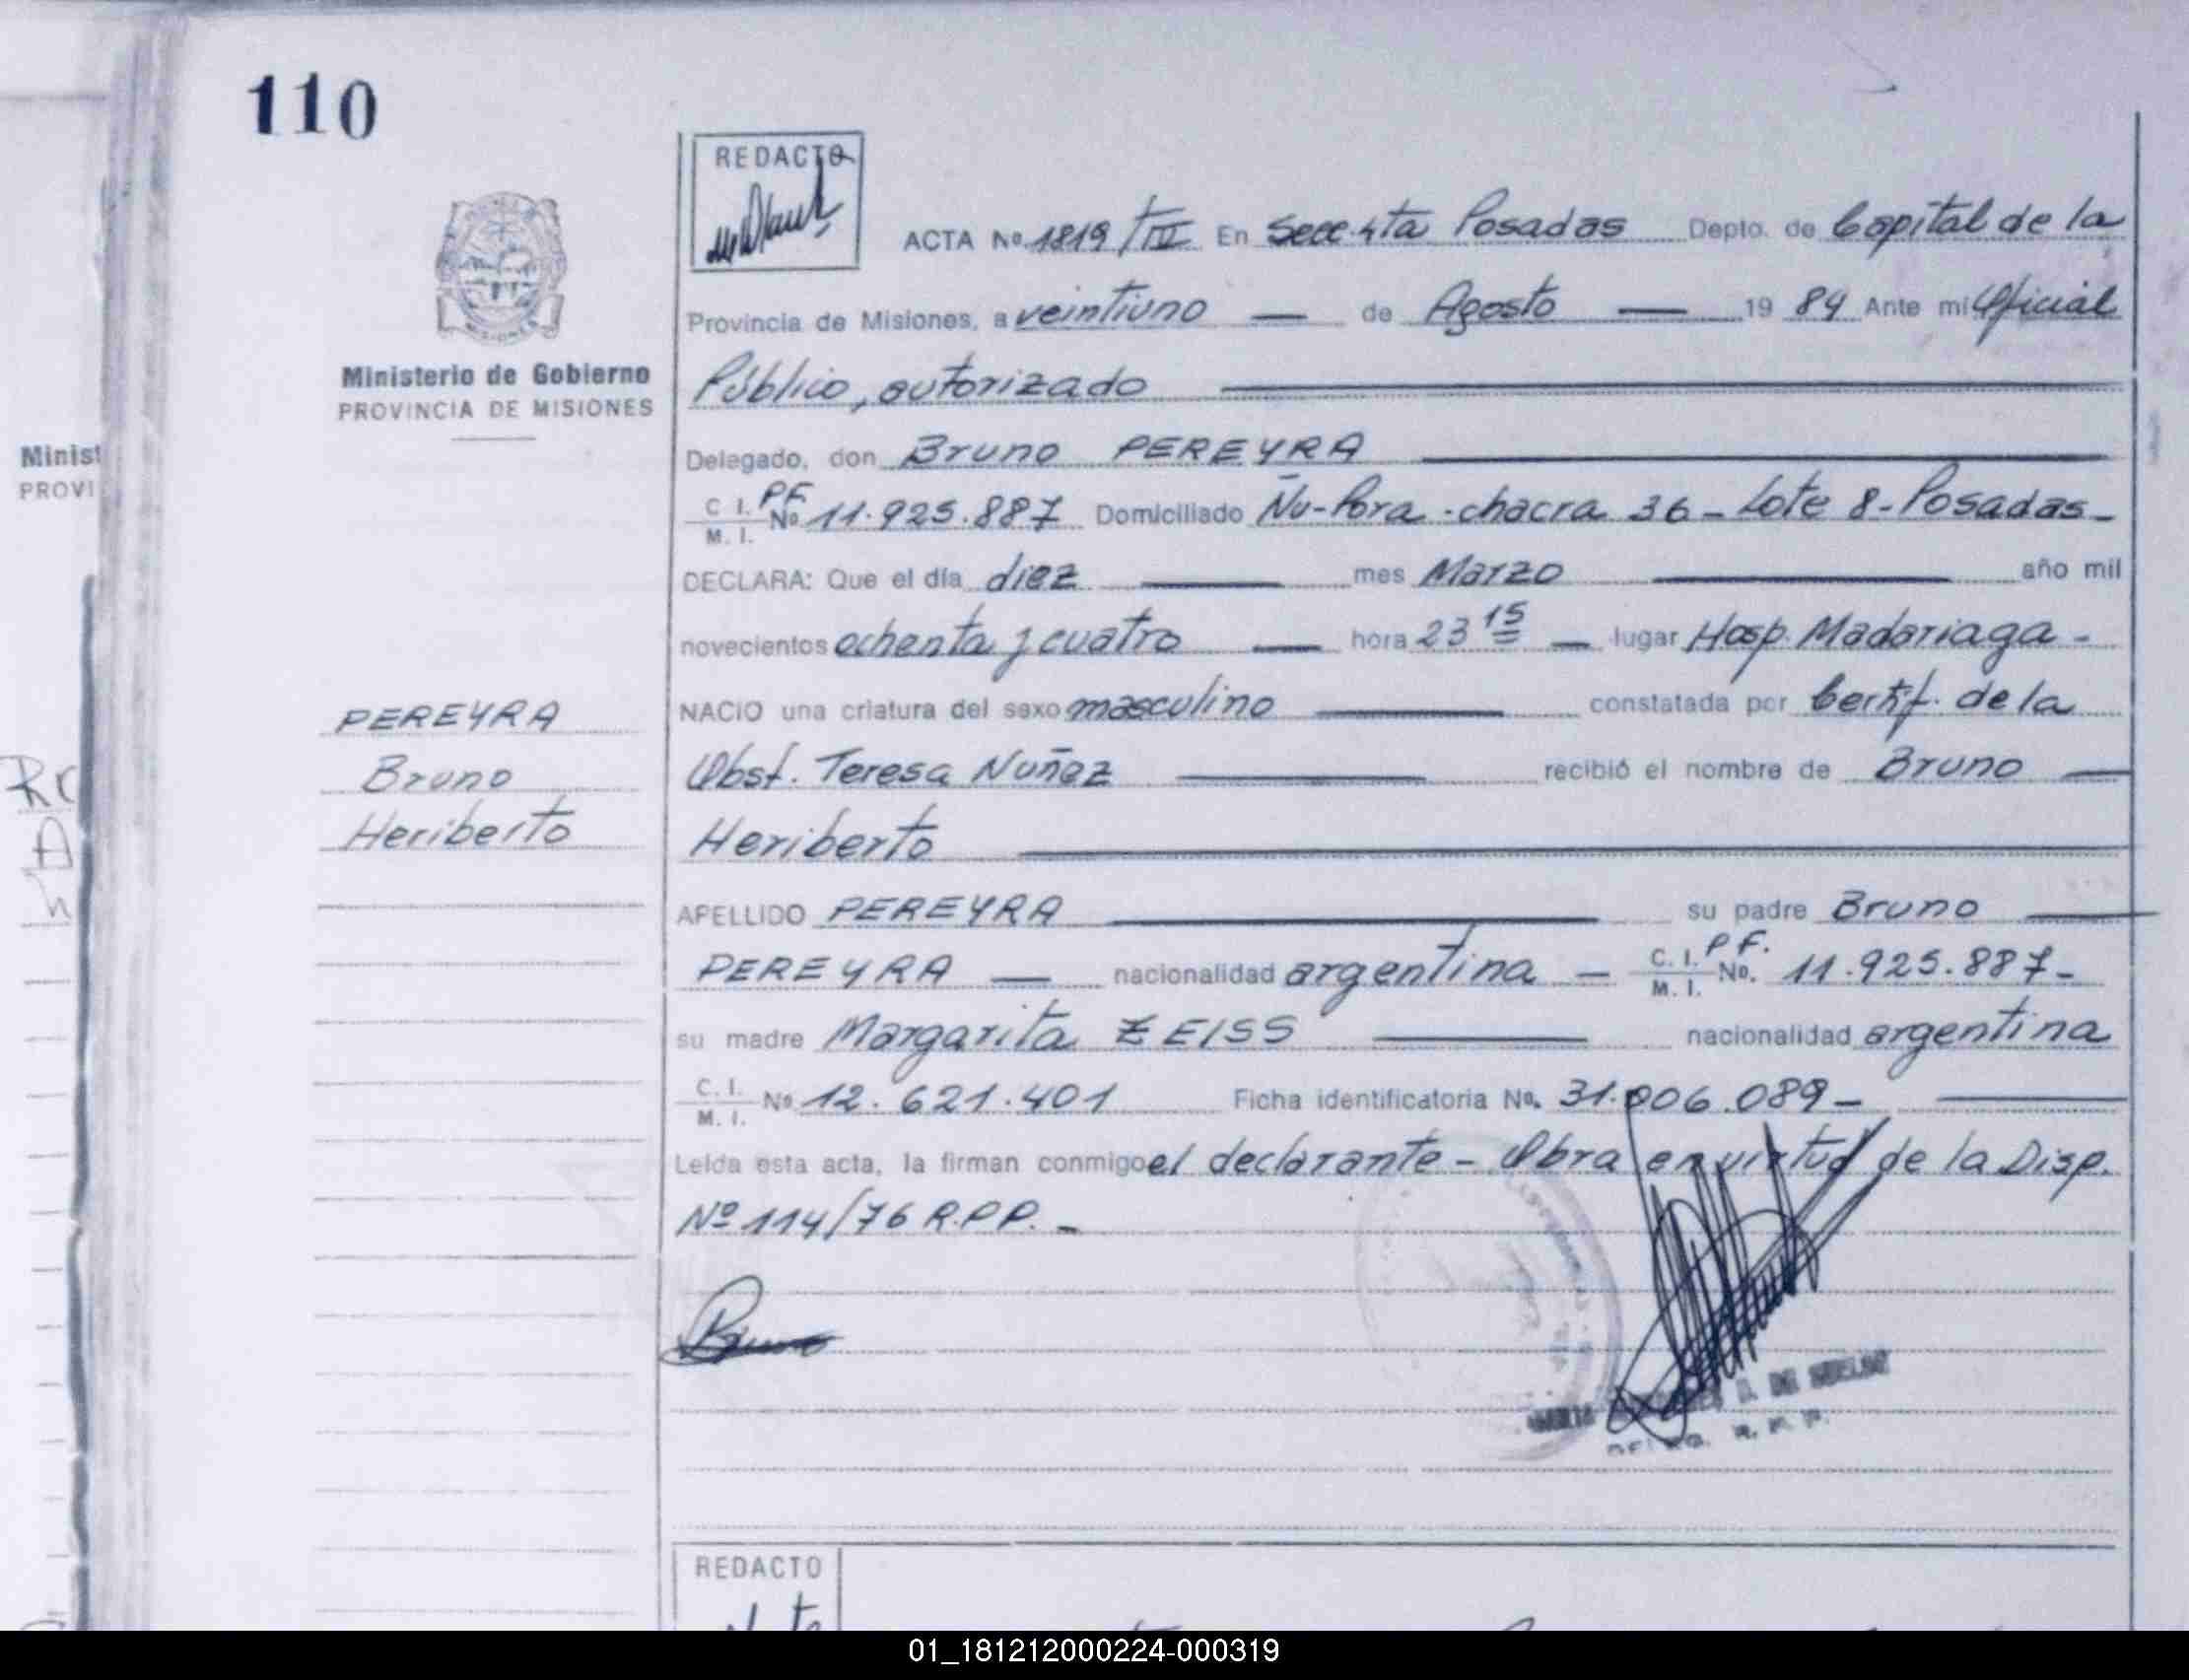 110
REDACTO
ACTA No. 1819/TIII En Secc. 4ta Posadas Depto. de Capital de la
Provincia de Misiones, a veintiuno — de Agosto — 19 84 Ante mi Oficial
Ministerio de Gobierno
PROVINCIA DE MISIONES
Público, autorizado
Delegado, don Bruno PEREYRA
C. I. PF
M. I. No. 11.925.887 Domiciliado Ñu-Pora - chacra 36 - Lote 8 - Posadas -
Minist
PROVI
DECLARA: Que el día diez — mes Marzo — año mil
novecientos ochenta y cuatro — hora 23 15 — lugar Hosp. Madariaga -
NACIO una criatura del sexo masculino — constatada por Certif. de la
Obst. Teresa Nuñez — recibió el nombre de Bruno —
Heriberto
PEREYRA
Bruno
Heriberto
APELLIDO PEREYRA — su padre Bruno —
PEREYRA — nacionalidad argentina — C. I. P F.
M. I. No. 11.925.887 -
su madre Margarita ZEISS — nacionalidad argentina
C. I.
M. I. No. 12.621.401 Ficha identificatoria No. 31.006.089 -
Leída esta acta, la firman conmigo el declarante - Obra en virtud de la Disp.
Nº 114/76 R.P.P. -
Bruno
DE
R. P. P.
REDACTO
01_181212000224-000319